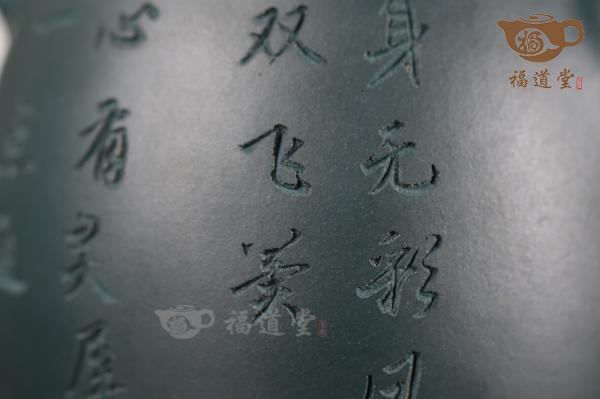 身无彩凤
双飞翼
心有灵犀
一点
福道堂
福道堂